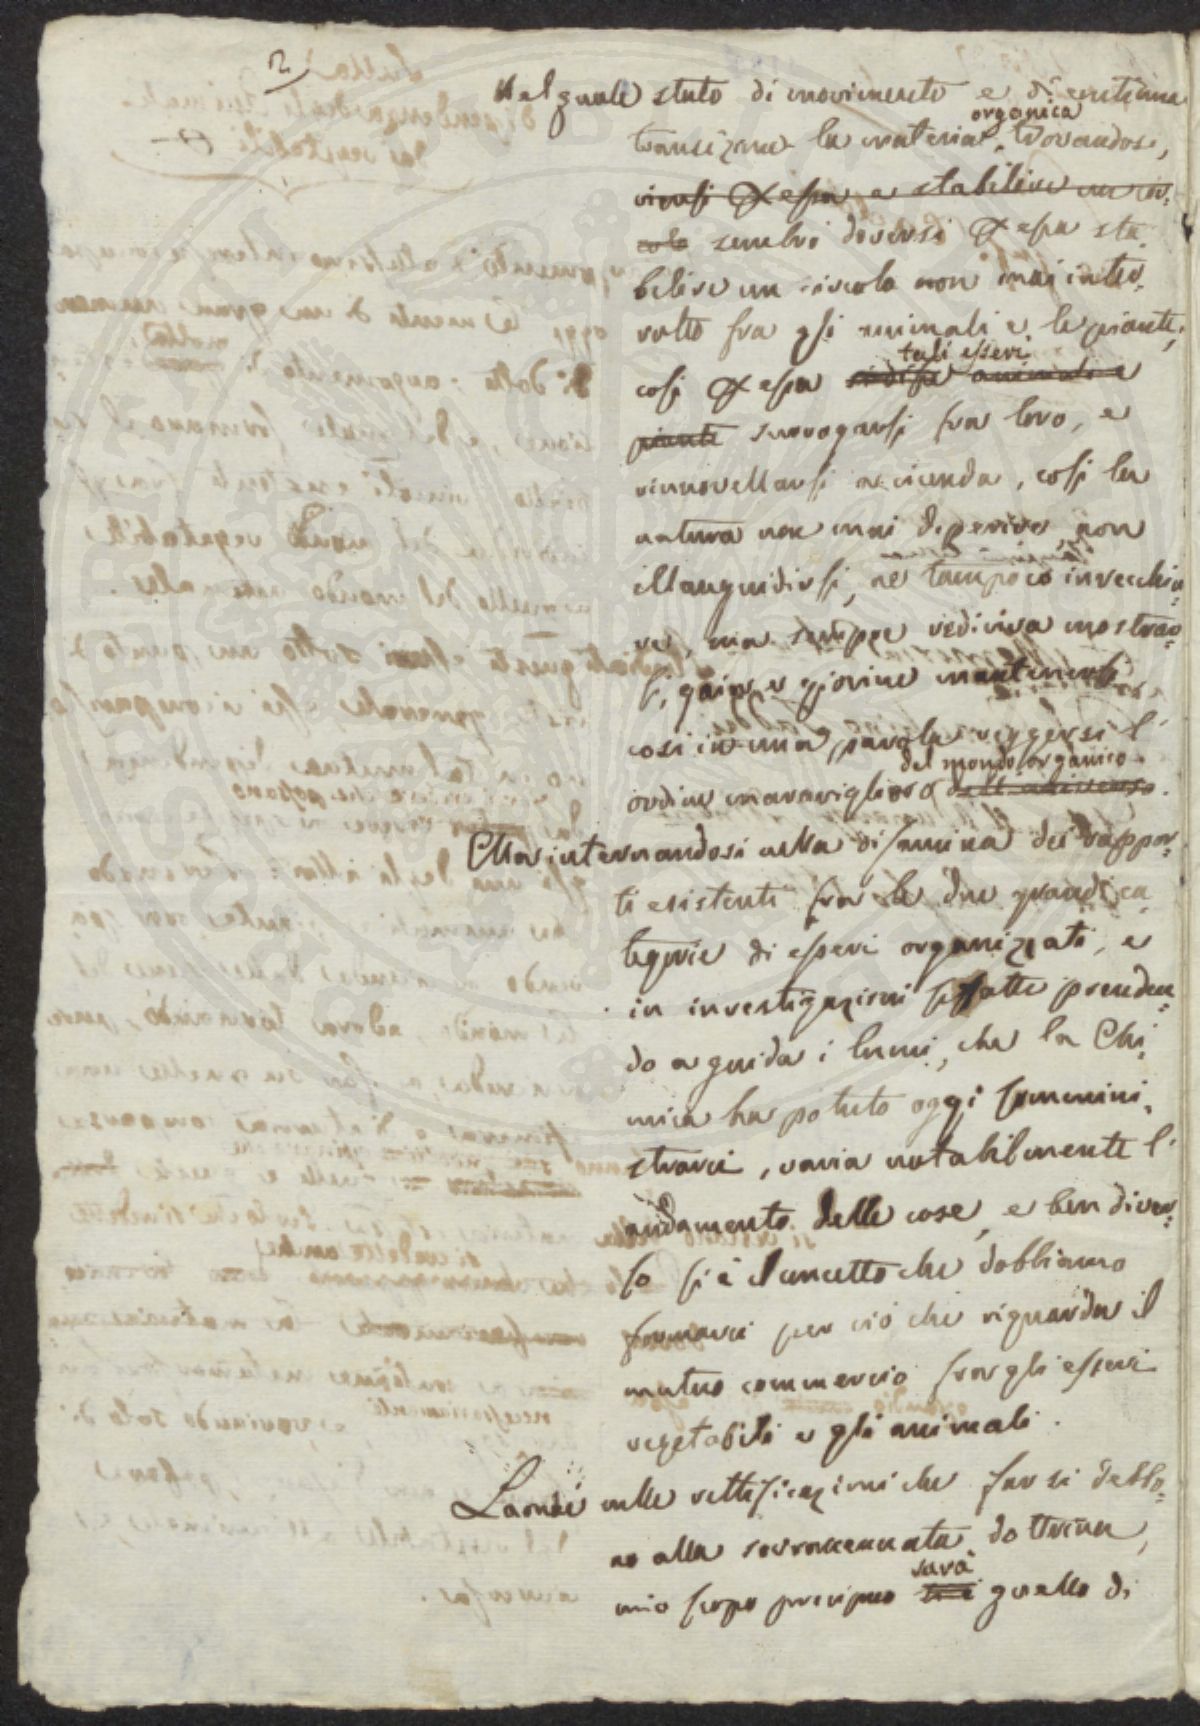 2
Nel quale stato di movimento e di continua
organica
transizione la materia, trovandosi,
viensi p essa a stabilire un cir-
colo sembrò doversi p essa sta-
bilire un circolo non mai inter-
rotto fra gli animali e le piante;
tali esseri
così p essa animali e
piante surrogarsi fra loro, e
rinnovellarsi a vicenda, così la
natura non mai deperire, non
illanguidirsi, ne tampoco invecchia-
re, ma sempre rediviva mostrar-
si, gaia e giovine mantenersi
così in una parola reggersi l'
del mondo organico
ordine maraviglioso dell'universo.
Ma internandosi nella disamina dei rappor-
ti esistenti fra le due grandi ca-
tegorie di esseri organizzati, e
in investigazioni sì fatte prenden-
do a guida i lumi, che la Chi-
mica ha potuto oggi sommini-
strarci, varia notabilmente l'
andamento delle cose, e ben diver-
so si è il concetto che dobbiamo
formarci per ciò che riguarda il
mutuo commercio fra gli esseri
vegetabili e gli animali.
Laonde nelle rettificazioni che far si debbo-
no alla sovraccennata dottrina,
sarà
mio scopo precipuo quello di